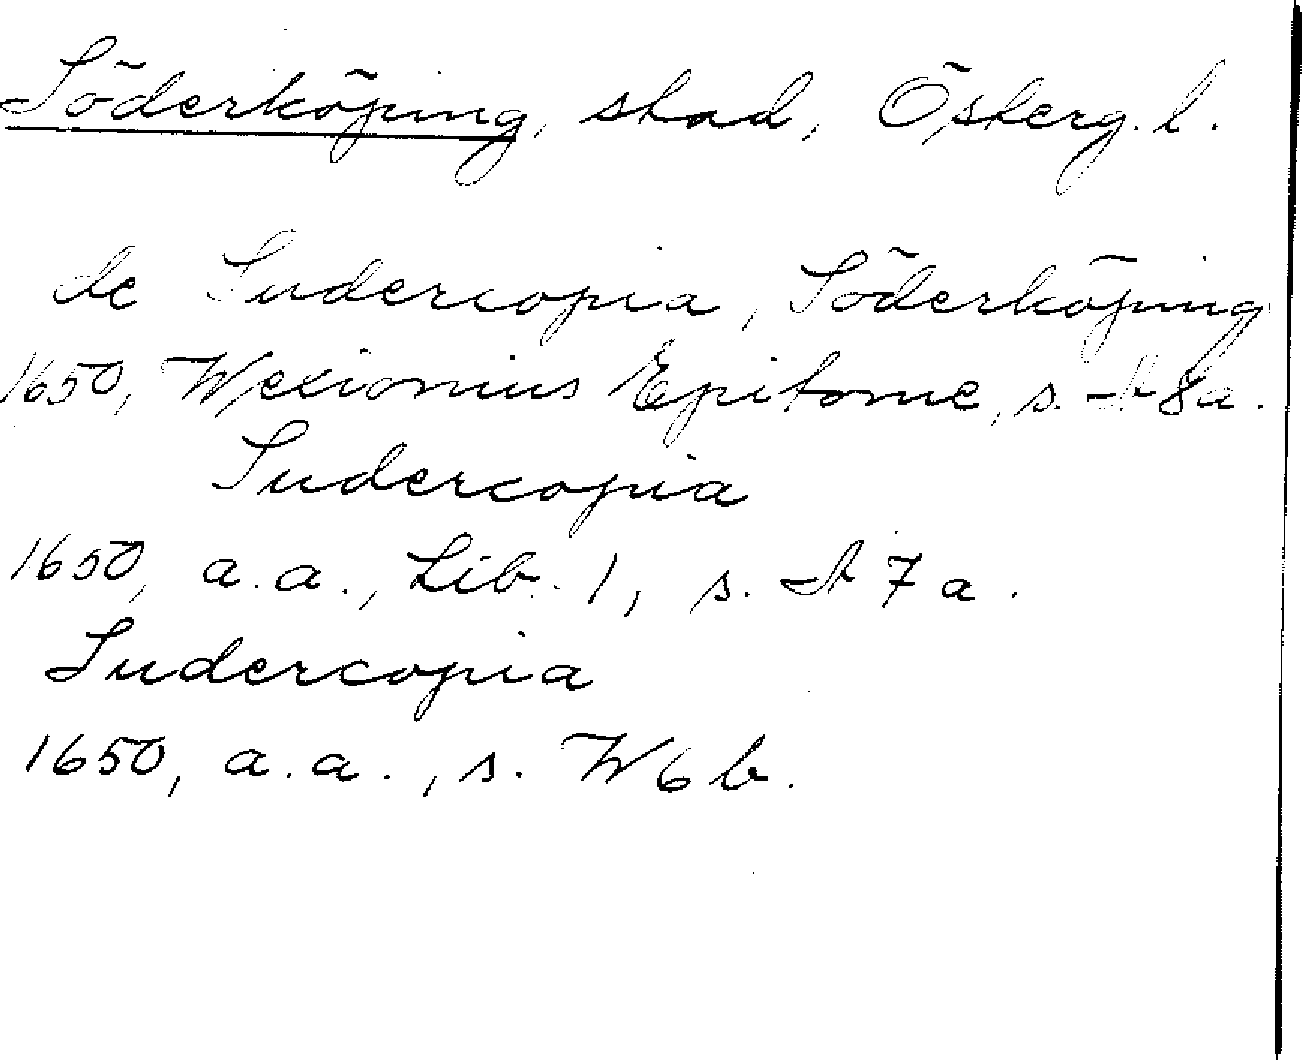 Söderköping, stad, Österg. l.
de Sudercopia, Söderköping
1650, Wexionius Epitome, s. A 8 a.
Sudercopia
1650, a.a., Lib. 1, s. A 7 a.
Sudercopia
1650, a.a., s. W 6 b.